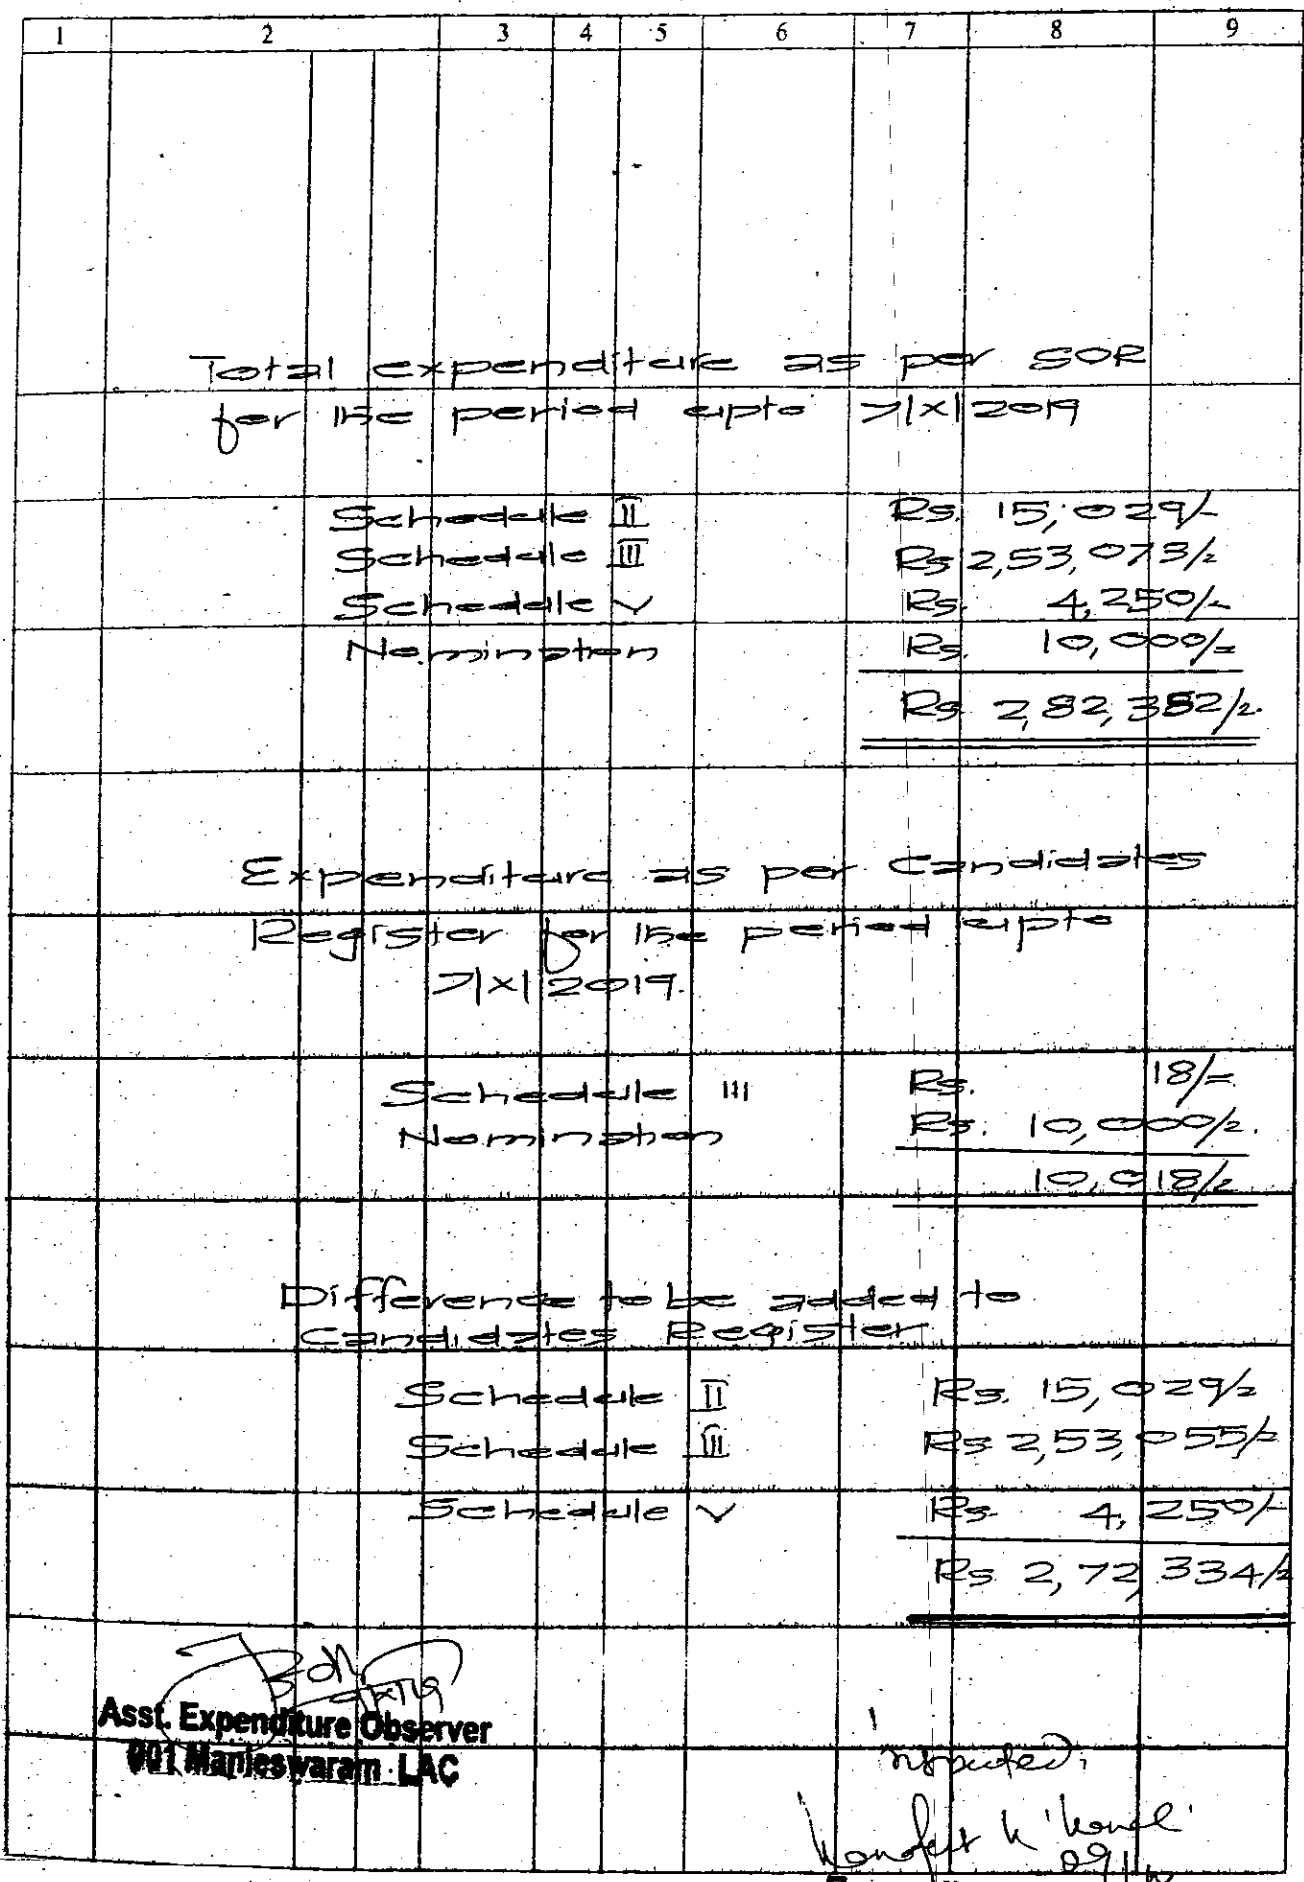 1 2 3 4 5 6 7 8 9
Total expenditure as per SOR
for the period upto 7/X/2019
Schedule II Rs. 15,029/-
Schedule III Rs 2,53,073/=
Schedule V Rs. 4,250/-
Nomination Rs. 10,000/=
Rs 2,82,382/=.
Expenditure as per Candidates
Register for the period upto
7/X/2019.
Schedule III Rs. 18/=
Nomination Rs. 10,000/=.
10,018/=
Difference to be added to
Candidates Register
Schedule II Rs. 15,029/=
Schedule III Rs 2,53,055/=
Schedule V Rs. 4,250/-
Rs 2,72,334/=
Asst. Expenditure Observer
001 Manjeswaram LAC
Inspected.